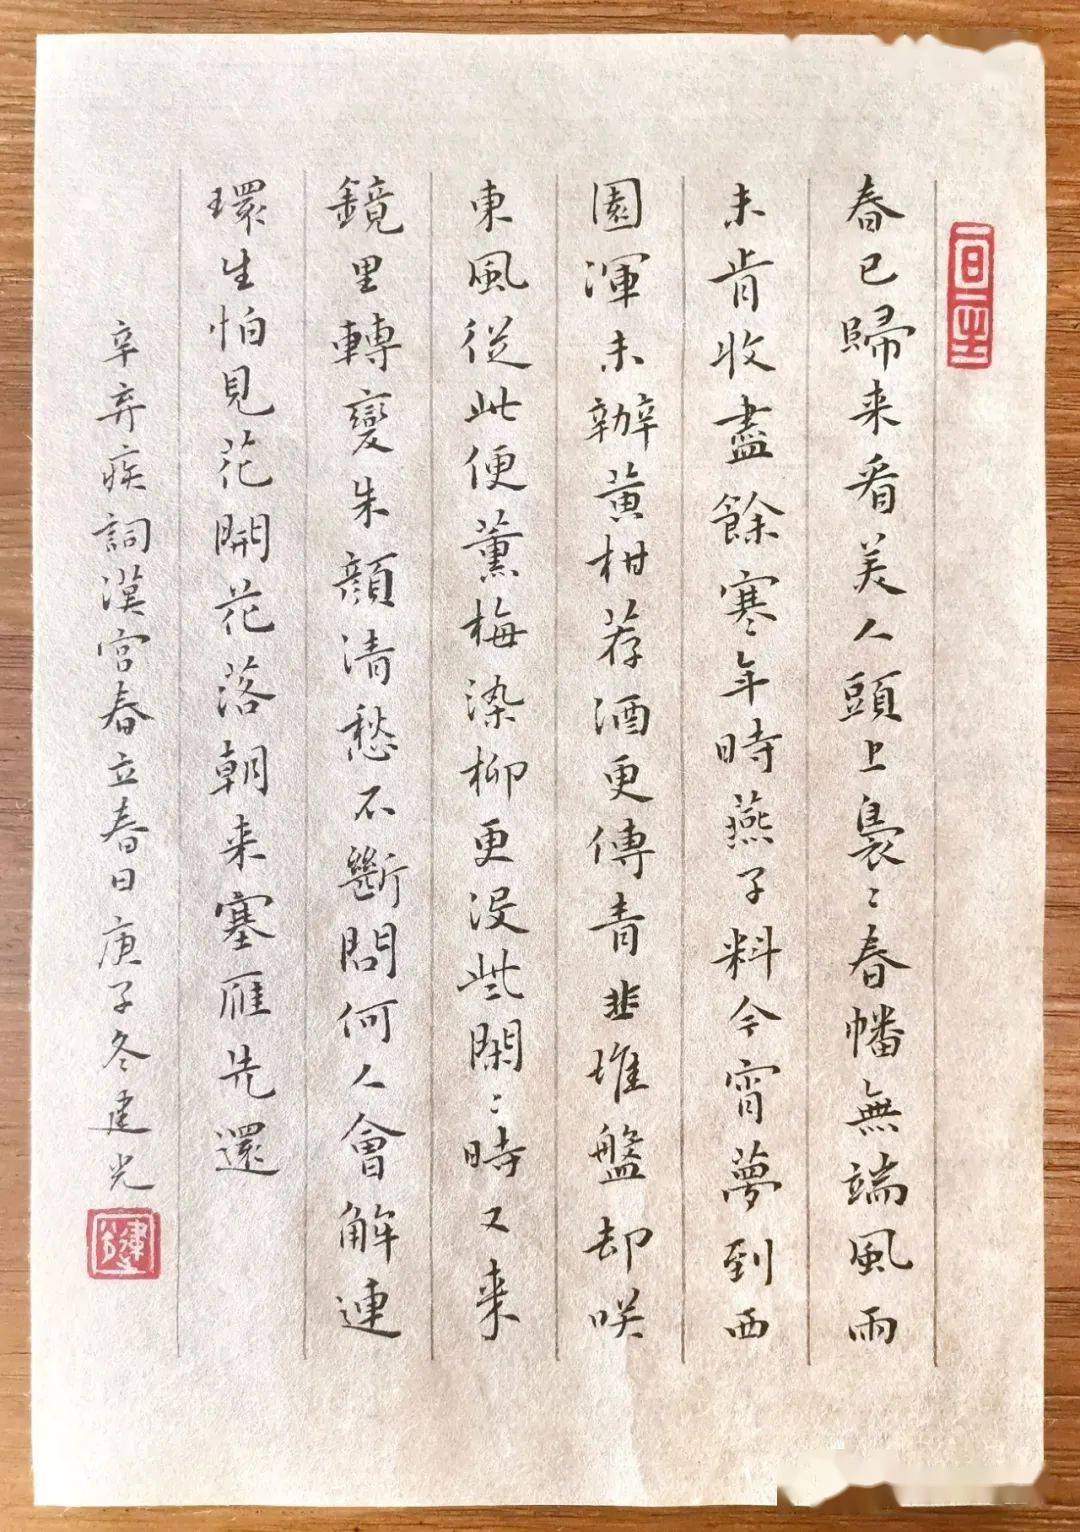 春已歸来看美人頭上裊〻春幡無端風雨
未肯收盡餘寒年時燕子料今宵夢到西
園渾未辦黄柑荐酒更傳青韭堆盤却咲
東風從此便薰梅染柳更没些閑〻時又来
鏡里轉變朱顔清愁不斷問何人會解連
環生怕見花開花落朝来塞雁先還
辛弃疾詞漢宫春立春日庚子冬建光